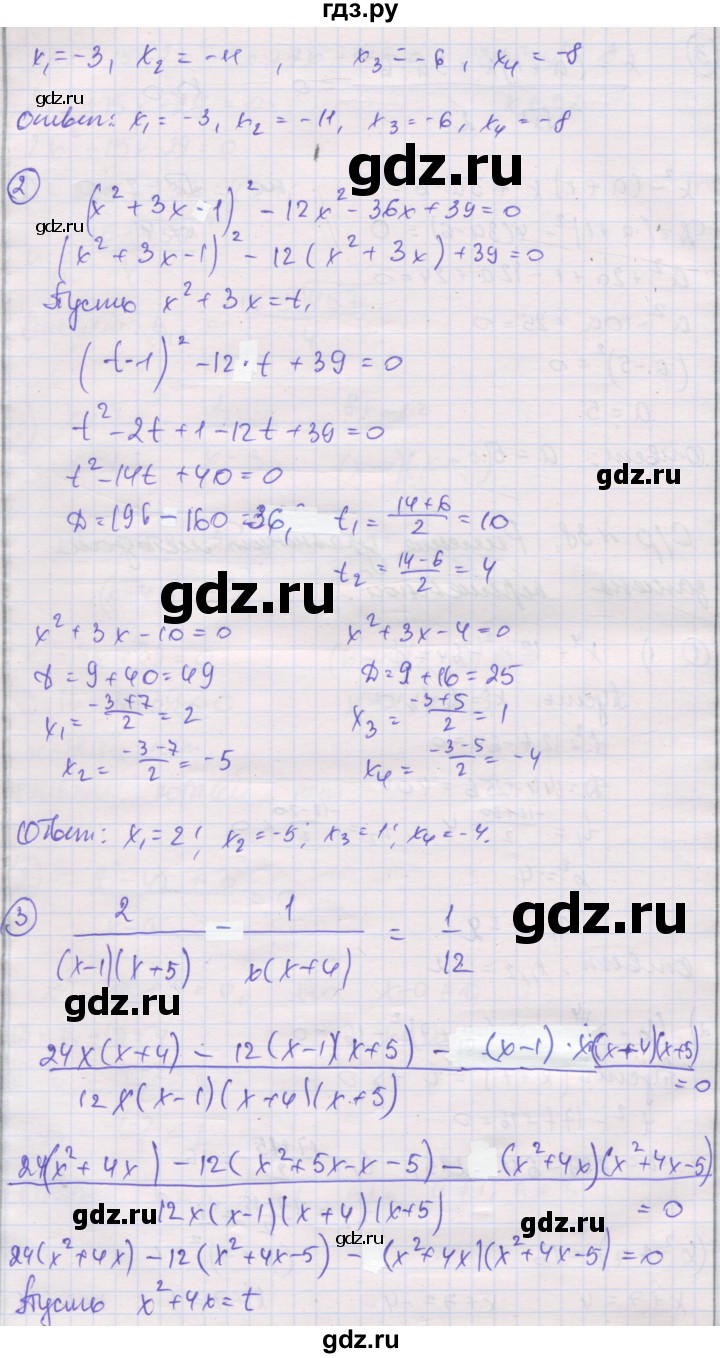 гдз.ру
x₁=-3, x₂ = -11, x₃ = -6, x₄ = -8
gdz.ru
gdz.ru
Ответ: x₁ = -3, x₂ = -11, x₃ = -6, x₄ = -8
gdz.ru
② (x² + 3x - 1)² - 12x² - 36x + 39 = 0
gdz.ru
(x² + 3x - 1)² - 12(x² + 3x) + 39 = 0
Пусть x² + 3x = t,
(t-1)² - 12·t + 39 = 0
t² - 2t + 1 - 12t + 39 = 0
t² - 14t + 40 = 0
gdz.ru
D = 196 - 160 = 36, t₁ = (14+6)/2 = 10
t₂ = (14-6)/2 = 4
gdz.ru
x² + 3x - 10 = 0 x² + 3x - 4 = 0
D = 9 + 40 = 49 D = 9 + 16 = 25
x₁ = (-3+7)/2 = 2 x₃ = (-3+5)/2 = 1
x₂ = (-3-7)/2 = -5 x₄ = (-3-5)/2 = -4
Ответ: x₁ = 2; x₂ = -5; x₃ = 1; x₄ = -4.
gdz.ru
③ 2/((x-1)(x+5)) - 1/(x(x+4)) = 1/12
gdz.ru
(24x(x+4) - 12(x-1)(x+5) - (x-1)·x(x+4)(x+5))/(12x(x-1)(x+4)(x+5)) = 0
gdz.ru
(24(x² + 4x) - 12(x² + 5x - x - 5) - (x² + 4x)(x² + 4x - 5))/(12x(x-1)(x+4)(x+5)) = 0
gdz.ru
gdz.ru
gdz.ru
24(x² + 4x) - 12(x² + 4x - 5) - (x² + 4x)(x² + 4x - 5) = 0
Пусть x² + 4x = t
gdz.ru
gdz.ru